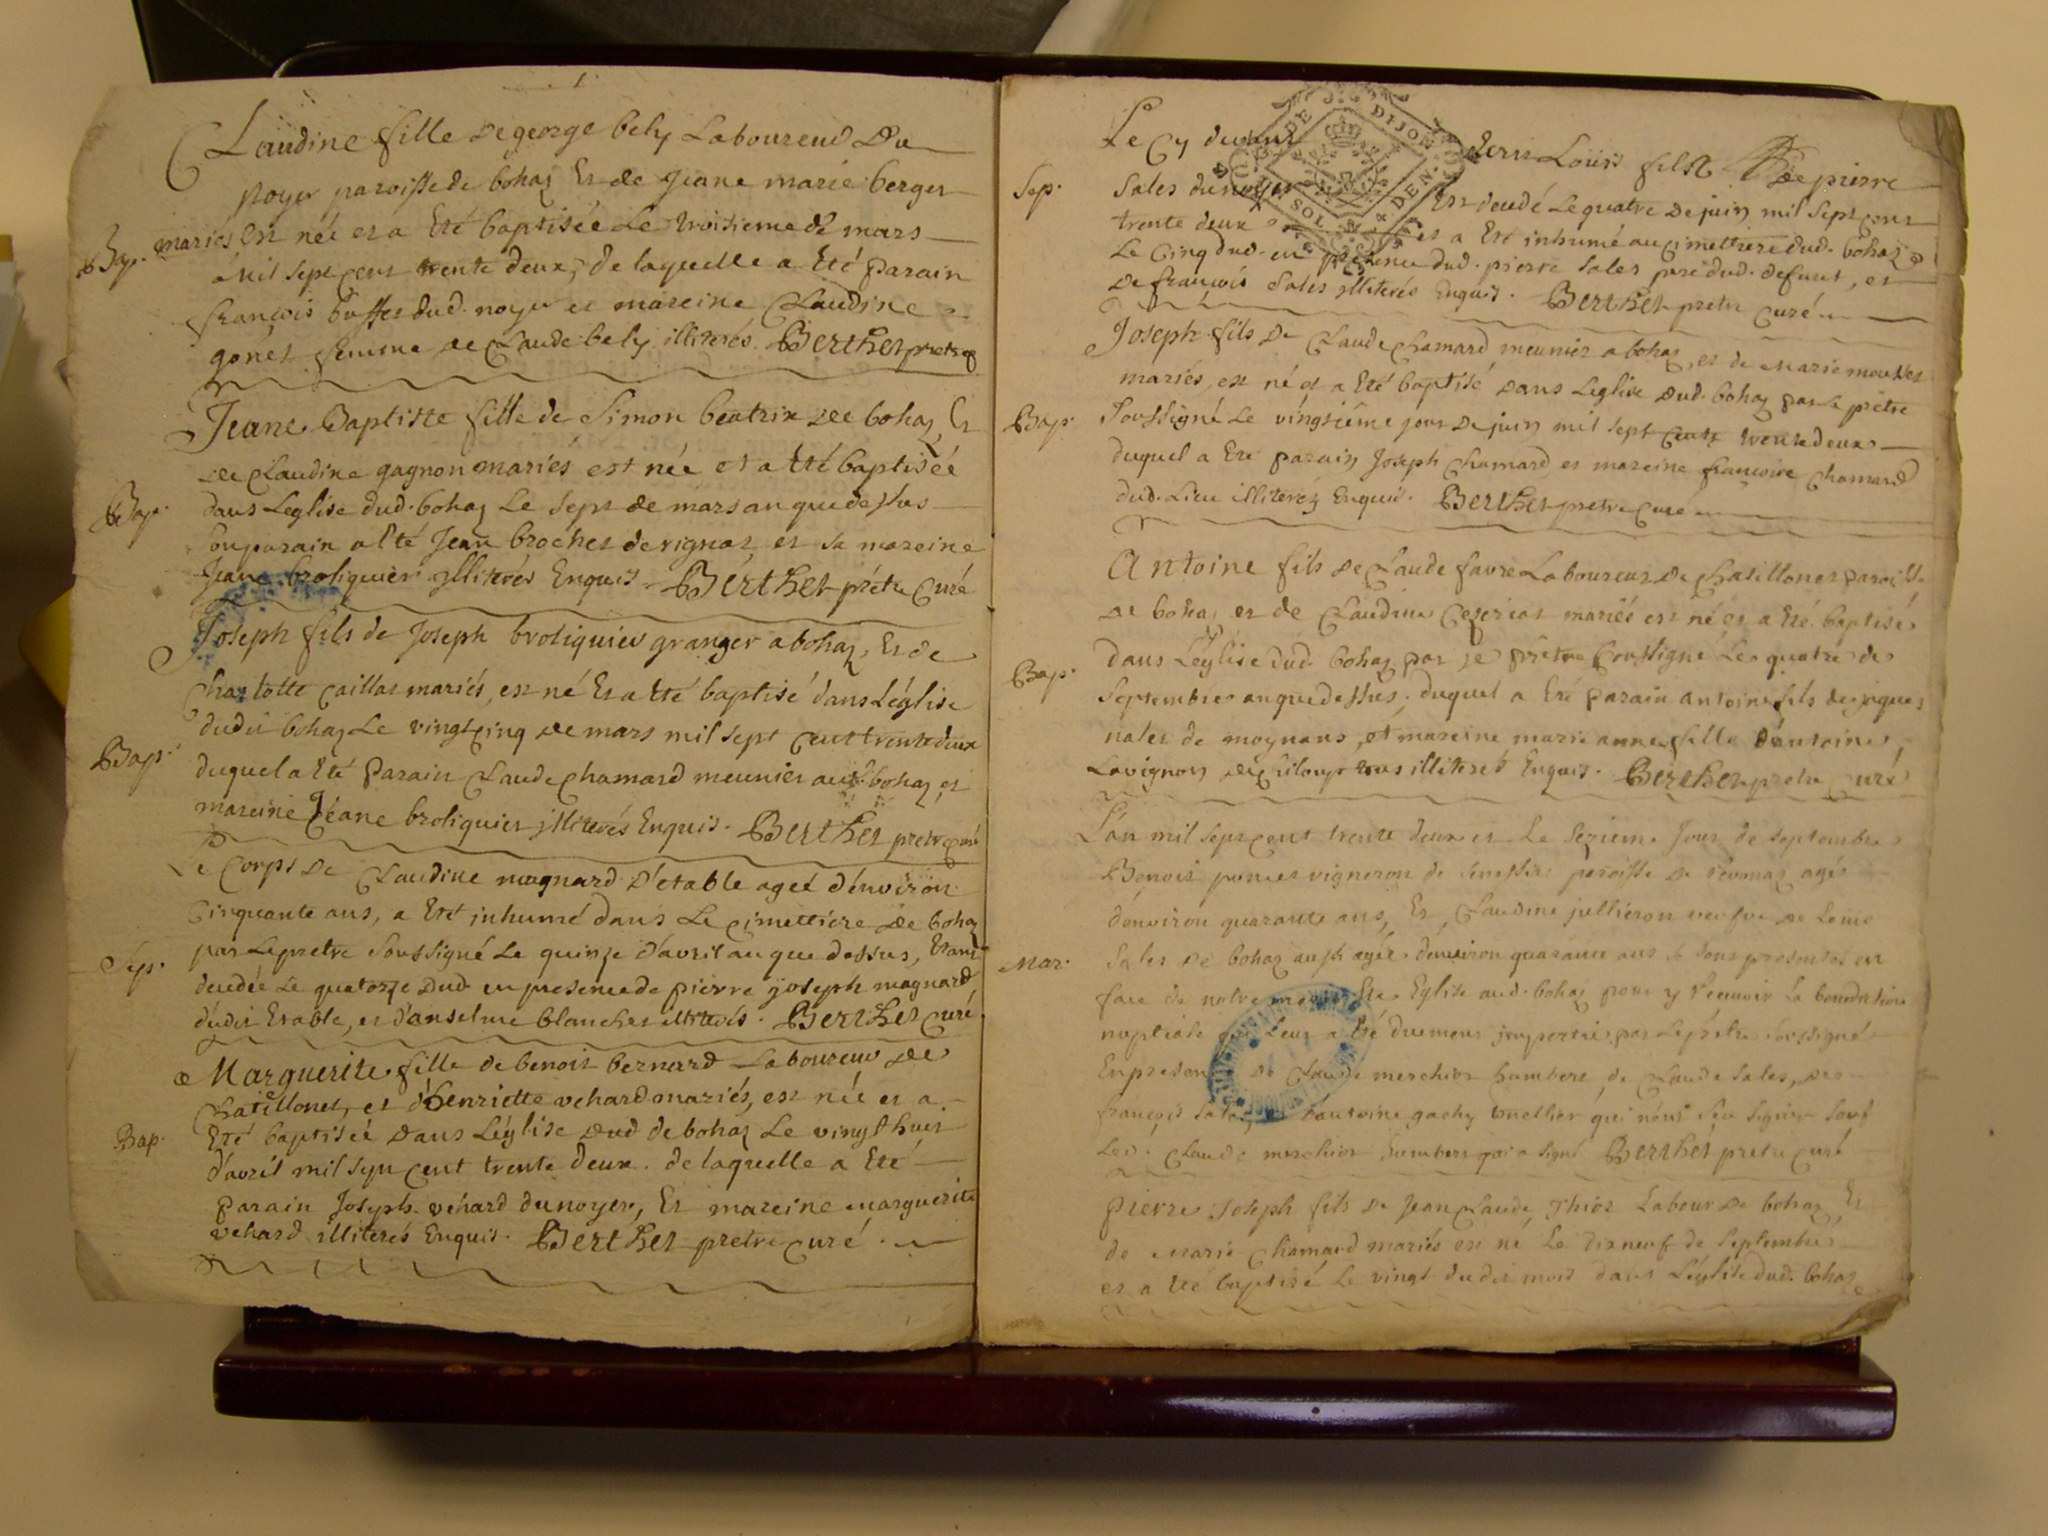 Claudine fille de george bely Laboureur Du
noyer paroisse de bohaz Et de Jeane marie berger
Bap. mariés est née et a Eté baptisée Le troisieme de mars
mil sept cent trente deux, de laquelle a Eté parain
françois buffet dud. noyer et mareine Claudine
gonet femme de Claude bely illiterés. Berthet pretre
Jeane Baptiste fille de Simon beatrix de bohaz, Et
de Claudine gagnon mariés est née et a Eté baptisée
Bap. dans Leglise dud. bohaz Le sept de mars an que dessus
son parain a Eté Jean brochet de rignat et sa mareine
Jeane broliquier illiterés Enquis. Berthet prétre Curé
Joseph fils de Joseph broliquier granger a bohaz, Et de
Charlotte Caillat mariés, est né Et a Eté baptisé dans Léglise
dudit bohaz Le vingt Cinq de mars mil sept Cent trente deux
Bap. duquel a Eté parain Claude Chamard meunier aud. bohaz et
mareine Jéane broliquier illiterés Enquis. Berthet pretre Curé
Le Corps de Claudine magnard d'étable ageé d'environ
Cinquante ans, a Eté inhumé dans Le Cimettiere de bohaz
Sep. par Le pretre soussigné Le quinze d'avril an que dessus, Etant
decedée Le quatorze dud. en presence de pierre joseph magnard
dudit Etable, et d'anselme blanchet illiterés. Berthet Curé
Marguerite fille de benoit bernard Laboureur de
Chatillonet, et d'henriette vehard mariés, est née et a
Bap. Eté baptiseé dans Léglise dud de bohaz Le vingt huit
d'avril mil sept Cent trente deux. de laquelle a Eté
parain Joseph vehard du noyer, Et mareine marguerite
vehard illiterés Enquis. Berthet pretre Curé.
Le Cy devant Louis fils de pierre
Sep. Sales du noyer Est decedé Le quatre de juin mil sept cent
trente deux et a Eté inhumé au Cimettiere dud. bohaz
Le Cinq dud. en presence dud. pierre Sales pere dud. defunt, et
de françois Sales illiterés Enquis. Berthet pretre Curé
Joseph fils de Claude Chamard meunier a bohaz, et de Marie
mariés, est né et a Eté baptisé dans Léglise dud. bohaz par Le prétre
Bap. Soussigné Le vingtiéme jour de juin mil sept Cent trente deux
duquel a Eté parain Joseph Chamard et mareine françoise Chamard
dud. Lieu illiterés Enquis. Berthet pretre Curé
Antoine fils de Claude favre Laboureur de Chatillonet paroisse
de bohaz et de Claudine mariés est né et a Eté baptisé
dans Léglise dud. bohaz par le prétre soussigné Le quatre de
Bap. Septembre an que dessus, duquel a Eté parain antoine fils de jaques
nalet de moynans, et mareine marie anne fille d'antoine
Lavignon de illiterés Enquis. Berthet pretre Curé
L'an mil sept cent trente deux et Le sezieme Jour de septembre
Benoit vigneron de paroisse de agé
d'environ quarante ans, Et Claudine jullieron veufve de Louis
Mar. Sales de bohaz aussi agée d'environ quarante ans se sont presentés en
face de notre mere Ste Eglise aud. bohaz pour y recevoir La benediction
nuptiale qui Leur a Eté duement impartie par Le prétre soussigné
En presence de Claude merchior humbert de Claude Sales, de
françois Sales, d'antoine gachy qui n'ont sçu signer sauf
Led. Claude merchior humbert qui a signé Berthet prétre Curé
Pierre Joseph fils de Jean Claude Labour de bohaz Et
de Marie Chamard mariés est né Le dix neuf de Septembre
et a Eté baptisé Le vingt dudit mois dans Léglise dud. bohaz